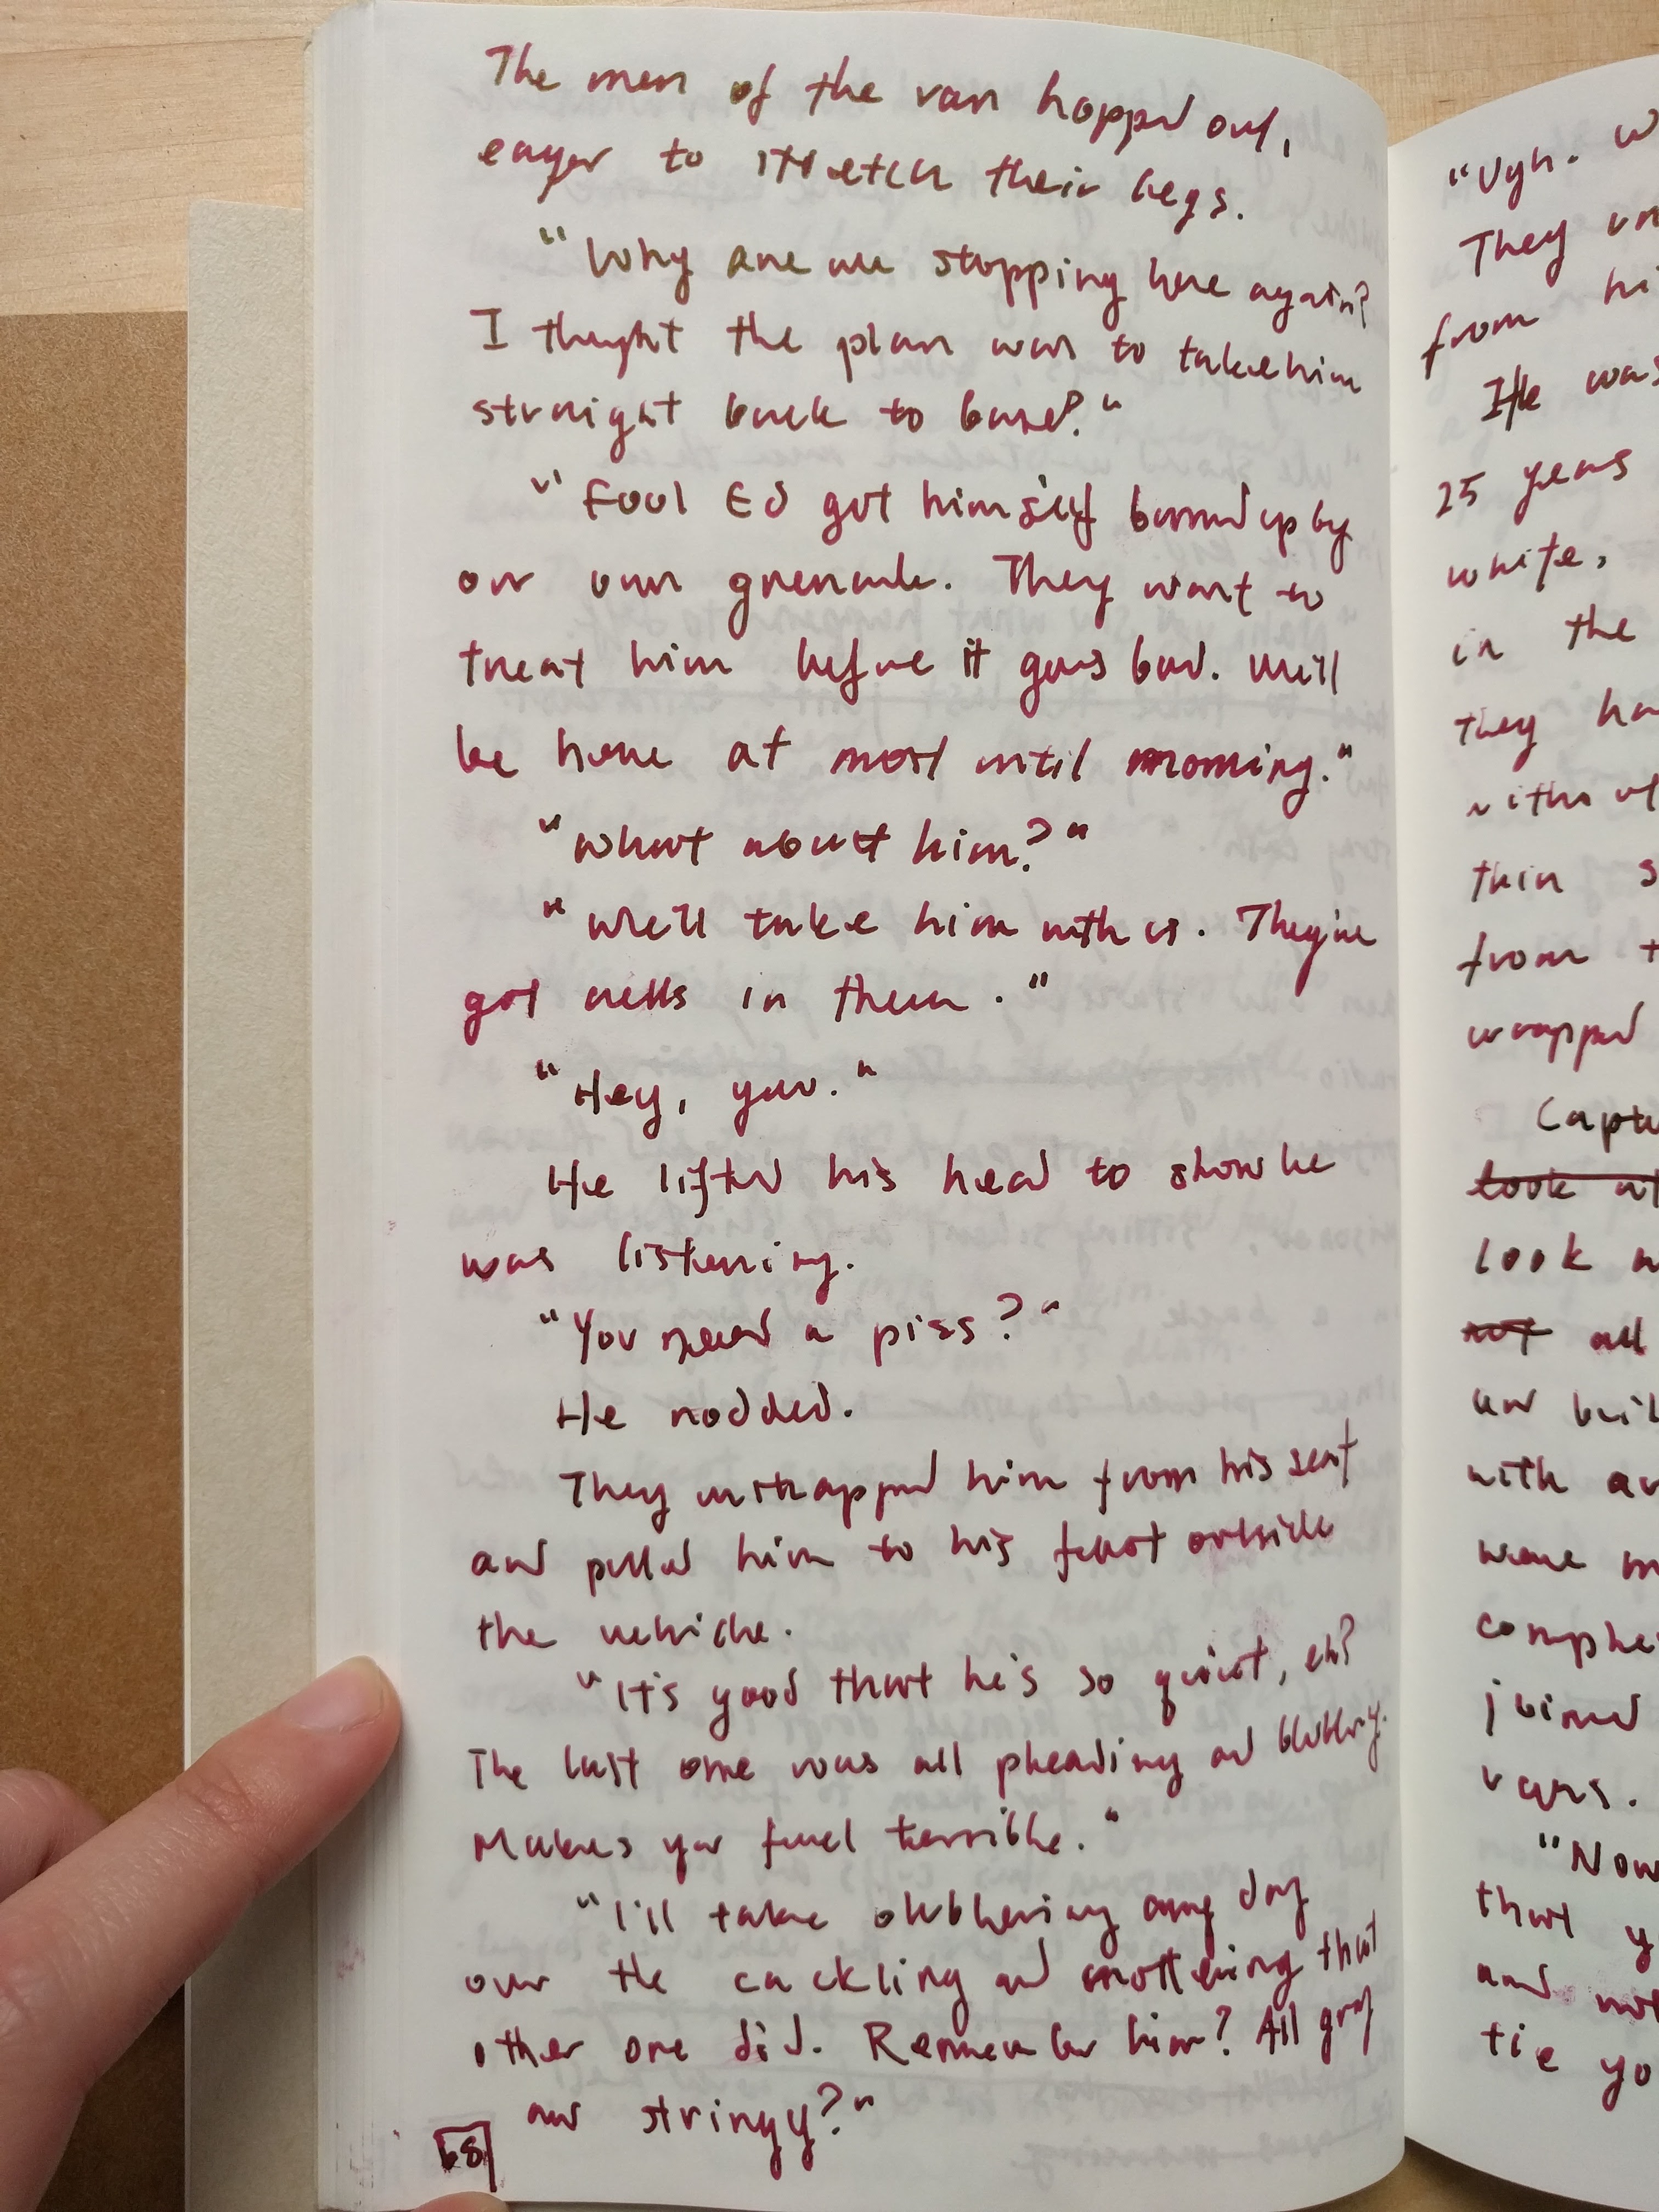 The men of the van hopped out,
eager to stretch their legs.
"Why are we stopping here again?
I thought the plan was to take him
straight back to base?"
"Fool Ed got himself burned up by
our own grenade. They want to
treat him before it goes bad. We'll
be here at most until morning."
"What about him?"
"We'll take him with us. They've
got cells in there."
"Hey, you."
He lifted his head to show he
was listening.
"You need a piss?"
He nodded.
They unstrapped him from his seat
and pulled him to his feet outside
the vehicle.
"It's good that he's so quiet, eh?
The last one was all pleading and blubbering.
Makes you feel terrible."
"I'll take blubbering any day
over the cackling and muttering that
other one did. Remember him? All gray
and stringy?"
68
"Ugh. W
They un
from hi
He was
25 years
white,
in the
they ha
without
thin s
from t
wrapped
Captu
look at
look a
not all
and
with
were m
comphe
joined
vans.
"Now
that y
and not
tie yo